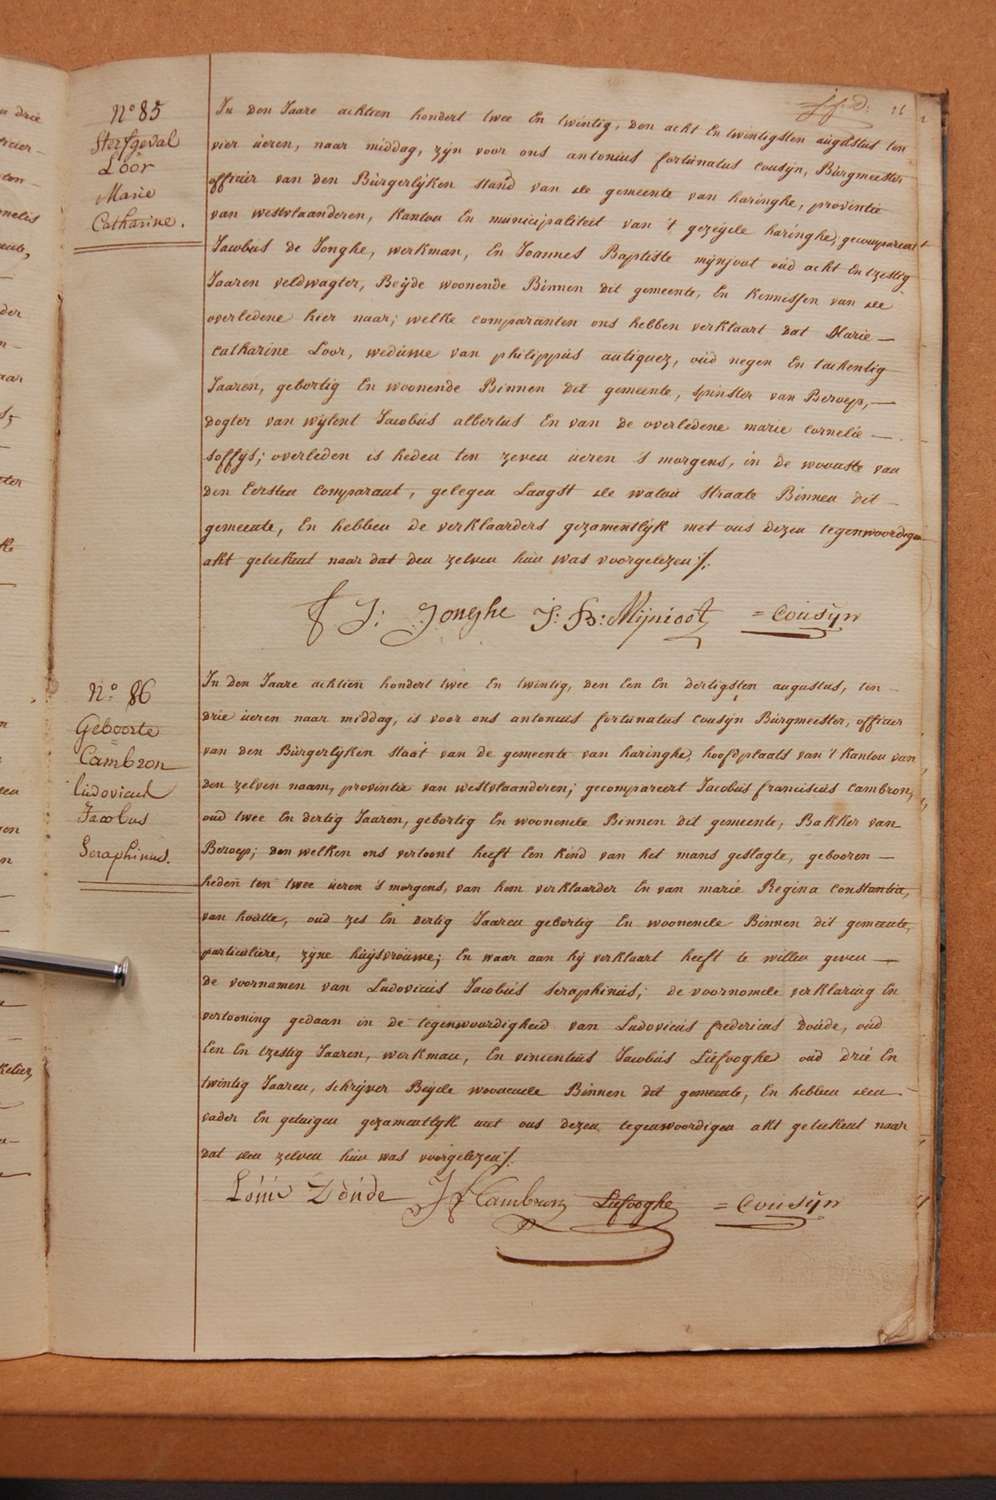 N° 85
Sterfgeval
Loor
Marie
Catharine.
In den Jaare achtien hondert twee En twintig, den acht En twintigsten augustus ten
vier ueren, naar middag, zijn voor ons antonius fortunatus cousijn, Burgmeester
officier van den Burgerlijken stand van de gemeente van haringhe, provintie
van westvlaanderen, kanton En municipaliteit van 't gezeijde haringhe, gecompareert
Jacobus de Jonghe, werkman, En Joannes Baptiste mijnjoot oud acht En tzestig
Jaaren veldwagter, Beijde woonende Binnen dit gemeente, En kennissen van de
overledene hier naar; welke comparanten ons hebben verklaart dat Marie
catharine Loor, weduwe van philippus autiquez, oud negen En tachentig
Jaaren, gebortig En woonende Binnen dit gemeente, spinster van Beroep,
dogter van wijlent Jacobus albertus En van de overledene marie cornelie
soffijs; overleden is heden ten zeven ueren 's morgens, in de woonste van
den Eersten comparant, gelegen Laagst de watou straate Binnen dit
gemeente, En hebben de verklaarders gezamentlijk met ons dezen tegenwoordigen
akt geteekent naar dat den zelven hun was voorgelezen /.
J: Jonghe J: B: Mijnioot = Cousijn
N° 86
Geboorte
=
Cambron
Ludovicus
Jacobus
Seraphinus.
In den Jaare achtien hondert twee En twintig, den Een En dertigsten augustus, ten
drie ueren naar middag, is voor ons antonius fortunatus cousijn Burgmeester, officier
van den Burgerlijken staat van de gemeente van haringhe, hoofdplaats van 't kanton van
den zelven naam, provintie van westvlaanderen; gecompareert Jacobus franciscus Cambron,
oud twee En dertig Jaaren, gebortig En woonende Binnen dit gemeente, Bakker van
Beroep; den welken ons vertoont heeft Een kind van het mans geslagte, gebooren
heden ten twee ueren 's morgens, van hem verklaarder En van marie Regina constantia,
van houtte, oud zes En dertig Jaaren gebortig En woonende Binnen dit gemeente,
particuliere, zijne huijsvrouwe; En waar aan hij verklaart heeft te willen geven
de voornamen van Ludovicus Jacobus seraphinus; de voornomde verklaring En
vertooning gedaan in de tegenwoordigheid van Ludovicus fredericus Doude, oud
Een En tzestig Jaaren, werkman, En vincentius Jacobus Liefooghe oud drie En
twintig Jaaren, schrijver Beijde woonende Binnen dit gemeente, En hebben den
vader En getuigen gezamentlijk met ons dezen tegenwoordigen akt geteekent naar
dat den zelven hun was voorgelezen /.
Louis Doude J F Cambron Liefooghe = Cousijn